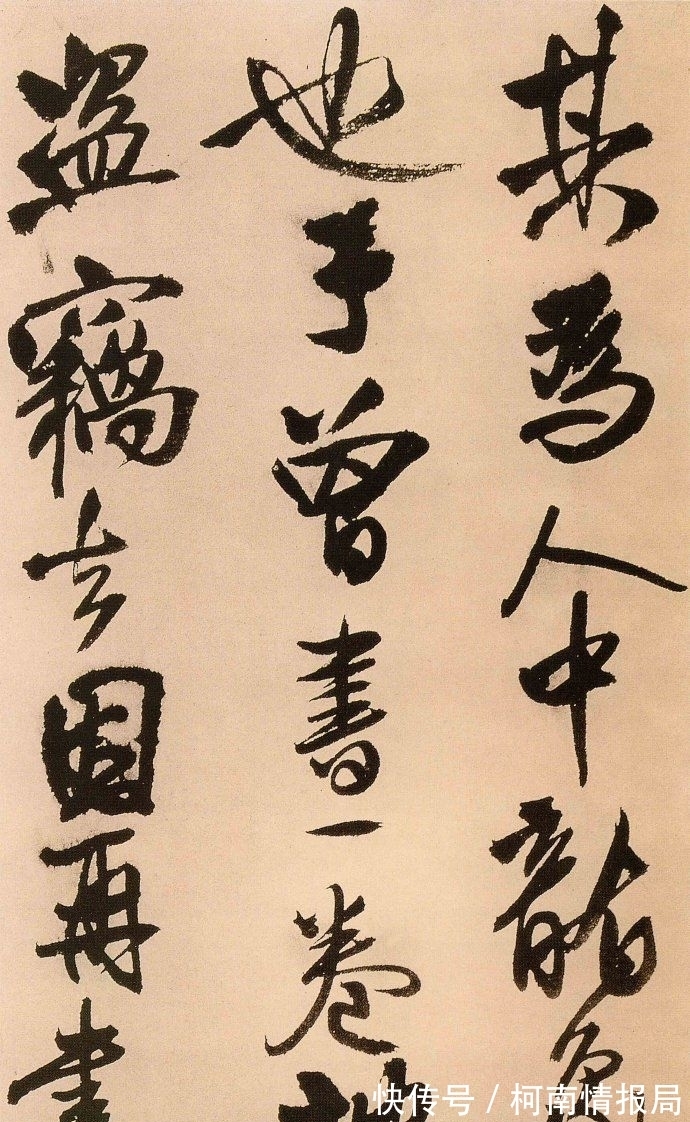 某為人中龍
也予曾書一卷
盜竊去因再書
快传号 / 柯南情报局